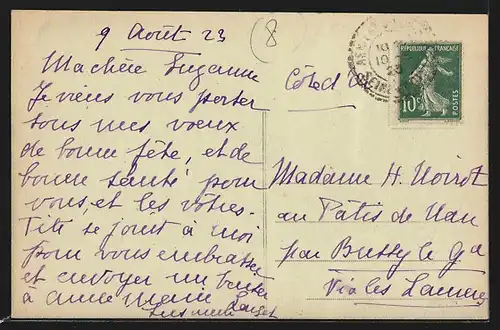 9 Août 23
(8
Ma chère Suzanne
Je viens vous porter
tous mes voeux
de bonne fête, et de
bonne santé pour
vous, et les votres.
Titi se joint à moi
pour vous embrasser
et envoyer un baiser
à Anne Marie
Côte d'
RÉPUBLIQUE FRANÇAISE
10c
POSTES
Madame H. Noirot
au Pâtis de
par Bussy le Gd
Via les Laumes